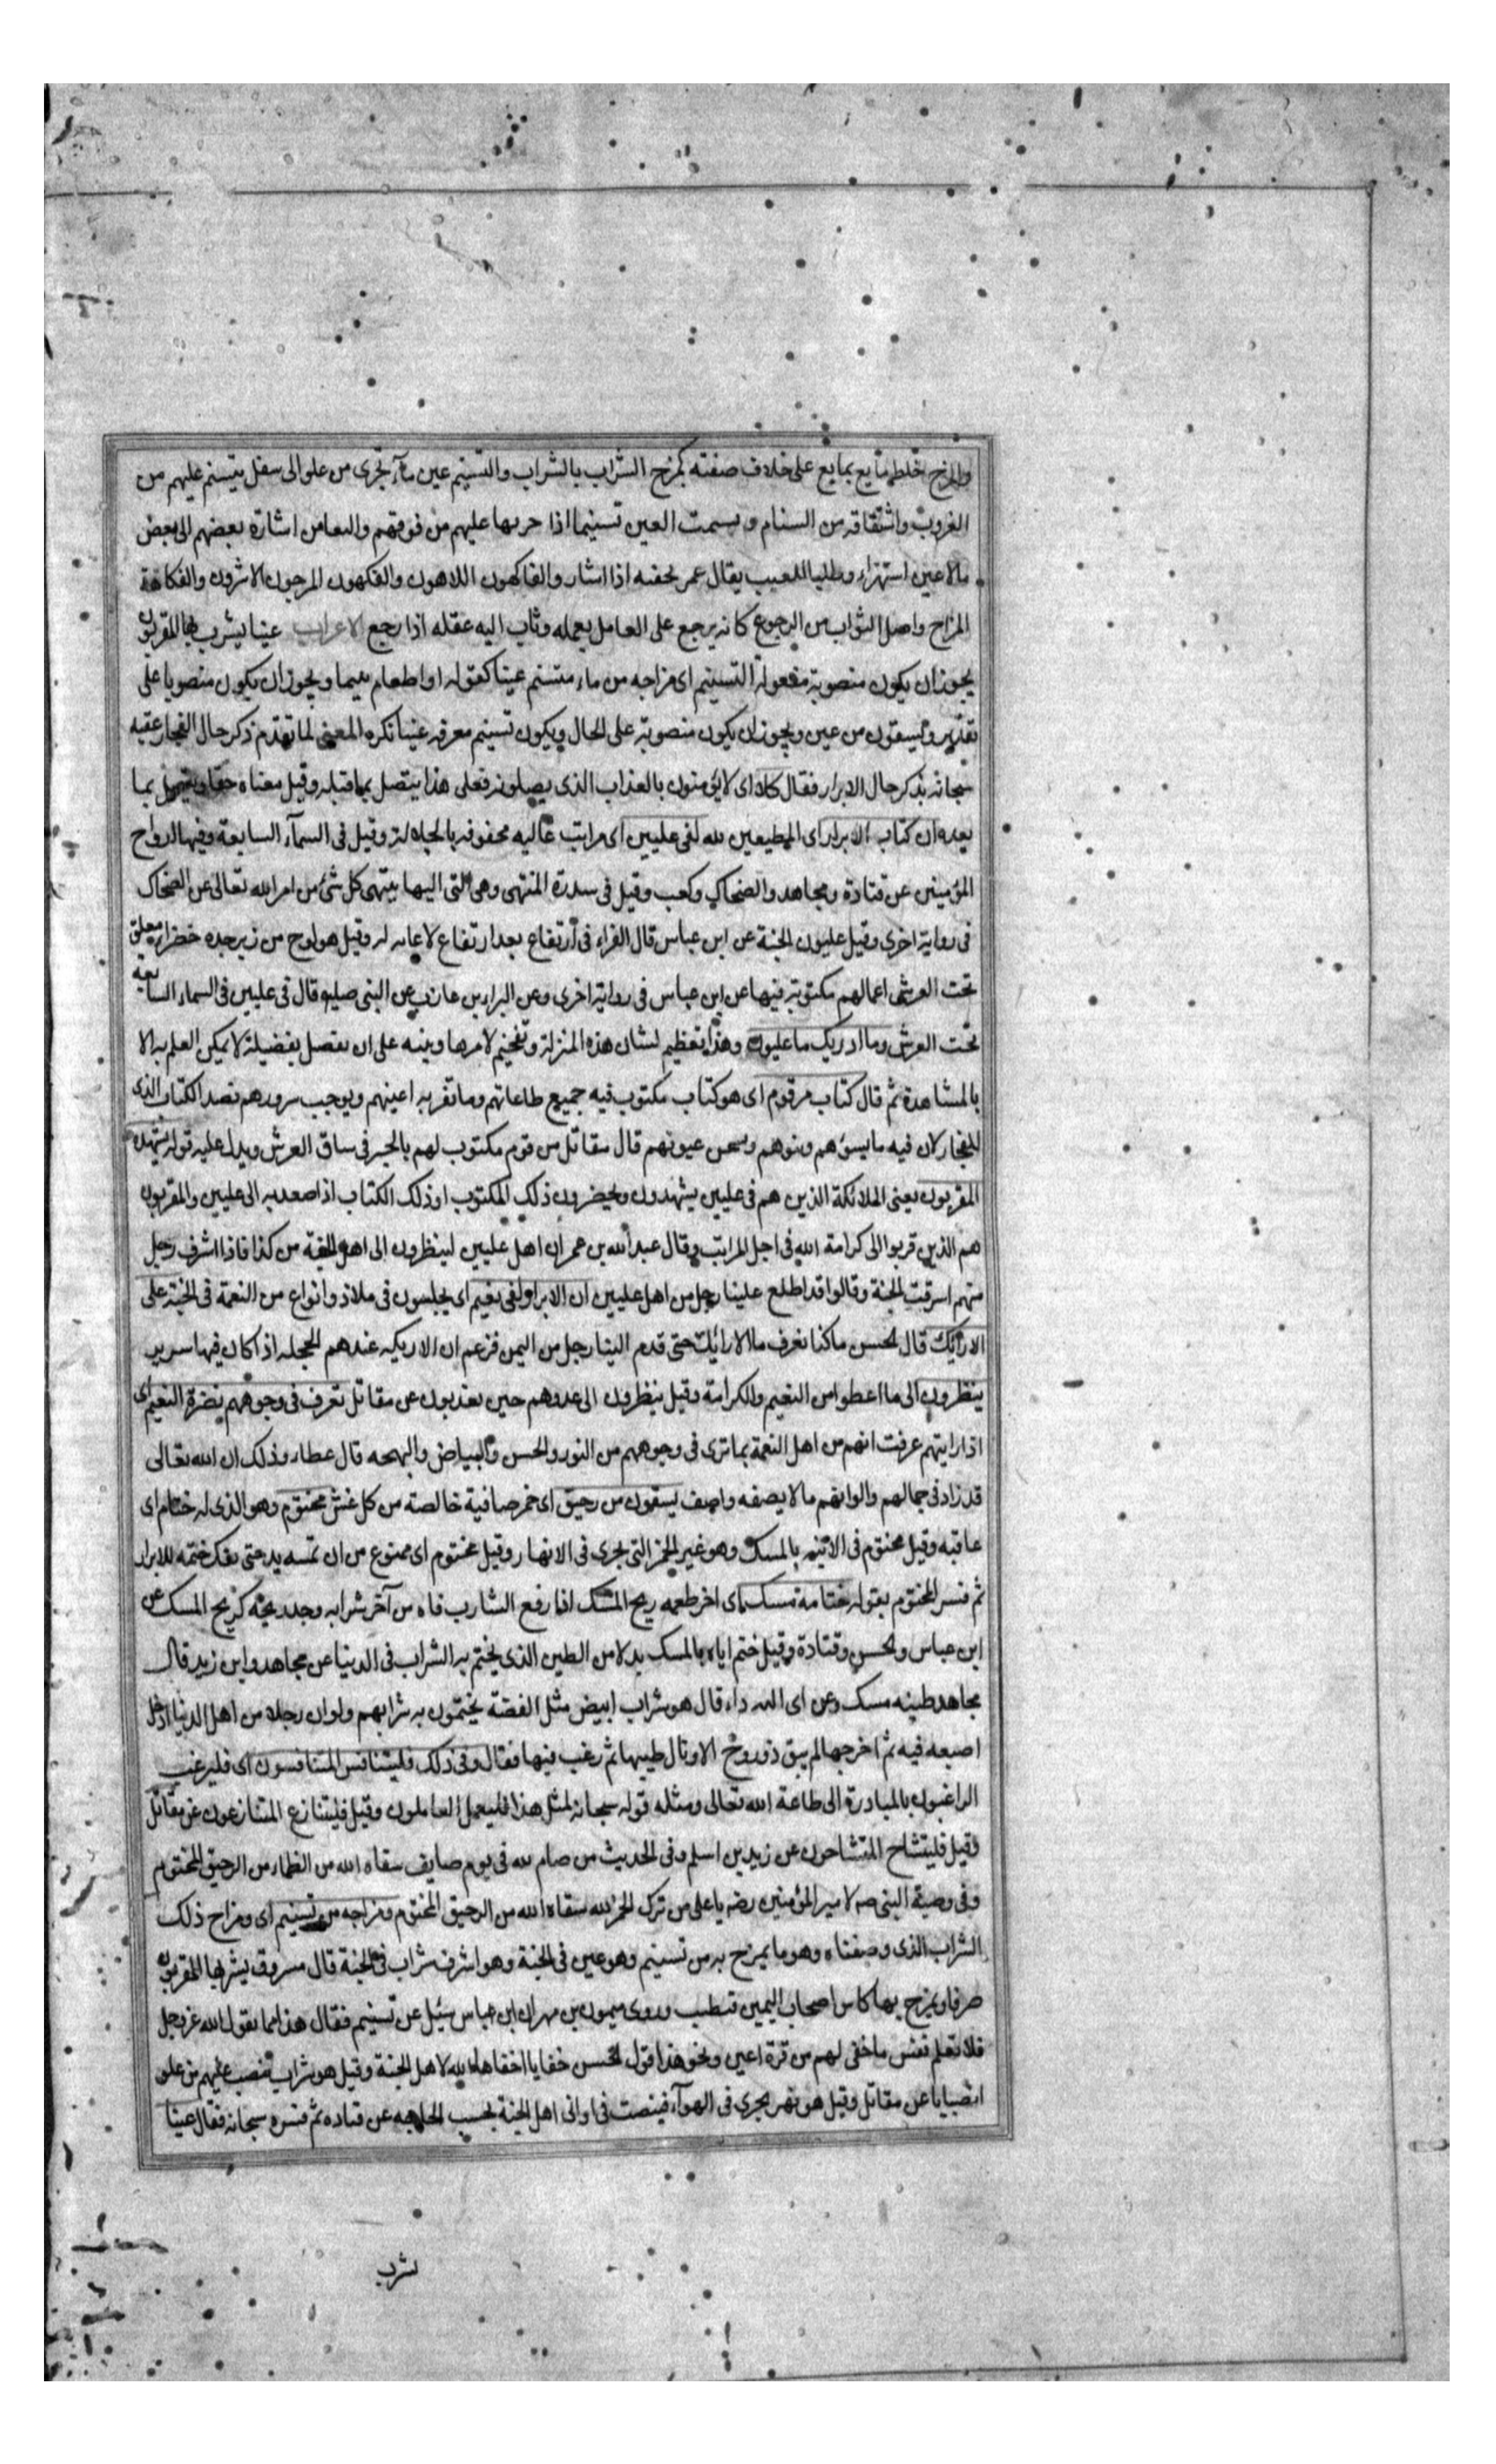 والمزج خلط مايع بمايع على خلاف صفته كمزج الشراب بالشراب والتسنيم عين ماء تجرى من علو الى سفل يتسنم عليهم من
الغروب واشتقاقه من السنام ويسمت العين تسنيما اذا جريها عليهم من فوقهم والتغامز اشارة بعضهم الى بعض
بالاعين استهزاء وطلبا للعيب يقال غمز بجفنه اذا اشار والفاكهون اللاهون والفكهون المرحون الاشرون والفكاهة
المزاح واصل الثواب من الرجوع كانه يرجع على العامل بعمله وثاب اليه عقله اذا رجع الاعراب عينا يشرب بها المقربون
يجوز ان يكون منصوبة مفعولة التسنيم اى مزاجه من ماء متسنم عينا كقوله او اطعام يتيما ويجوز ان يكون منصوبا على
تقدير ويسقون من عين ويجوز ان يكون منصوبة على الحال ويكون تسنيم معرفه عينا نكره المعنى لما تقدم ذكر حال الفجار عقبه
سبحانه بذكر حال الابرار فقال كلا اى لايؤمنون بالعذاب الذى يصلونه فعلى هذا يتصل بما قبله وقيل معناه حقا ويتصل بما
بعده ان كتاب الابرار اى المطيعين لله لفى عليين اى مراتب عاليه محفوفه بالجلاله وقيل فى السمآء السابعة وفيها ارواح
المؤمنين عن قتادة ومجاهد والضحاك وكعب وقيل فى سدرة المنتهى وهى التى اليها ينتهى كل شئ من امر الله تعالى عن الضحاك
فى رواية اخرى وقيل عليون الجنة عن ابن عباس قال الفراء فى ارتفاع بعد ارتفاع لا غايه له وقيل هو لوح من زبرجده خضراء معلق
تحت العرش اعمالهم مكتوبة فيها عن ابن عباس فى رواية اخرى وعن البراء بن عازب عن النبى صلي قال فى عليين فى السماء السابعه
تحت العرش وما ادريك ما عليون وهذا تعظيم لشان هذه المنزلة وتفخيم لامرها وينبه على ان تفصل تفضيلة لا يمكن العلم به الا
بالمشاهدة ثم قال كتاب مرقوم اى هو كتاب مكتوب فيه جميع طاعاتهم وما تقر به اعينهم ويوجب سرورهم بضد الكتاب الذى
للفجار لان فيه ما يسوءهم وينوهم وسخن عيونهم قال مقاتل مرقوم مكتوب لهم بالخير فى ساق العرش ويدل عليه قوله يشهده
المقربون يعنى الملائكة الذين هم فى عليين يشهدون ويحضرون ذلك المكتوب او ذلك الكتاب اذا صعد به الى عليين والمقربون
هم الذين قربوا الى كرامة الله فى اجل المراتب وقال عبد الله بن عمر ان اهل عليين لينظرون الى اهل الجنة من كذا فاذا اشرف رجل
منهم اشرقت الجنة وقالوا قد اطلع علينا رجل من اهل عليين ان الابرار لفى نعيم اى يجلسون فى ملاذ وانواع من النعمة فى الجنة على
الارائك قال الحسن ما كنا نعرف ما الارائك حتى قدم الينا رجل من اليمن فزعم ان الاريكه عندهم الحجله اذا كان فيها سرير
ينظرون الى ما اعطوا من النعيم والكرامة وقيل ينظرون الى عدوهم حين يعذبون عن مقاتل تعرف فى وجوههم نضرة النعيم اى
اذا رايتهم عرفت انهم من اهل النعمة بما ترى فى وجوههم من النور والحسن والبياض والبهجه قال عطاء وذلك ان الله تعالى
قد زاد فى جمالهم والوانهم ما لا يصفه واصف يسقون من رحيق اى خمر صافية خالصة من كل غش مختوم وهو الذى له ختام اى
عاقبه وقيل مختوم فى الآنيه بالمسك وهو غير الخمر التى تجرى فى الانهار وقيل مختوم اى ممنوع من ان تمسه يد حتى يفك ختمه للابرار
ثم فسر المختوم بقوله ختامه مسك اى اخر طعمه ريح المسك اذا رفع الشارب فاه من آخر شرابه وجد ريحه كريح المسك عن
ابن عباس والحسن وقتادة وقيل ختم اياه بالمسك بدلا من الطين الذى يختم به الشراب فى الدنيا عن مجاهد وابن زيد قال
مجاهد طينه مسك وعن ابى الدرداء قال هو شراب ابيض مثل الفضة يختمون به شرابهم ولو ان رجلا من اهل الدنيا ادخل
اصبعه فيه ثم اخرجها لم يبق ذو روح الا ونال طيبها ثم رغب فيها فقال وفى ذلك فليتنافس المتنافسون اى فليرغب
الراغبون بالمبادرة الى طاعة الله تعالى ومثله قوله سبحانه لمثل هذا فليعمل العاملون وقيل فليتنازع المتنازعون عن مقاتل
وقيل فليتشاح المتشاحون عن زيد بن اسلم وفى الحديث من صام لله فى يوم صايف سقاه الله من الظماء من الرحيق المختوم
وفى وصية النبى صه لامير المؤمنين رضه يا على من ترك الخمر لله سقاه الله من الرحيق المختوم ومزاجه من تسنيم اى ومزاج ذلك
الشراب الذى وصفناه وهو ما يمزج به من تسنيم وهو عين فى الجنة وهو اشرف شراب فى الجنة قال مسروق يشربها المقربون
صرفا ويمزج بها كاس اصحاب اليمين فتطيب وروى ميمون بن مهران ابن عباس سئيل عن تسنيم فقال هذا مما يقول الله عز وجل
فلا تعلم نفس ما خفى لهم من قرة اعين ونحو هذا قول الحسن خفايا اخفاها الله لاهل الجنة وقيل هو شراب ينصب عليهم من علو
انصبابا عن مقاتل وقيل هو نهر يجرى فى الهوآء فينصب فى اوانى اهل الجنة بحسب الحاجه عن قتاده ثم فسره سبحانه فقال عينا
يشرب